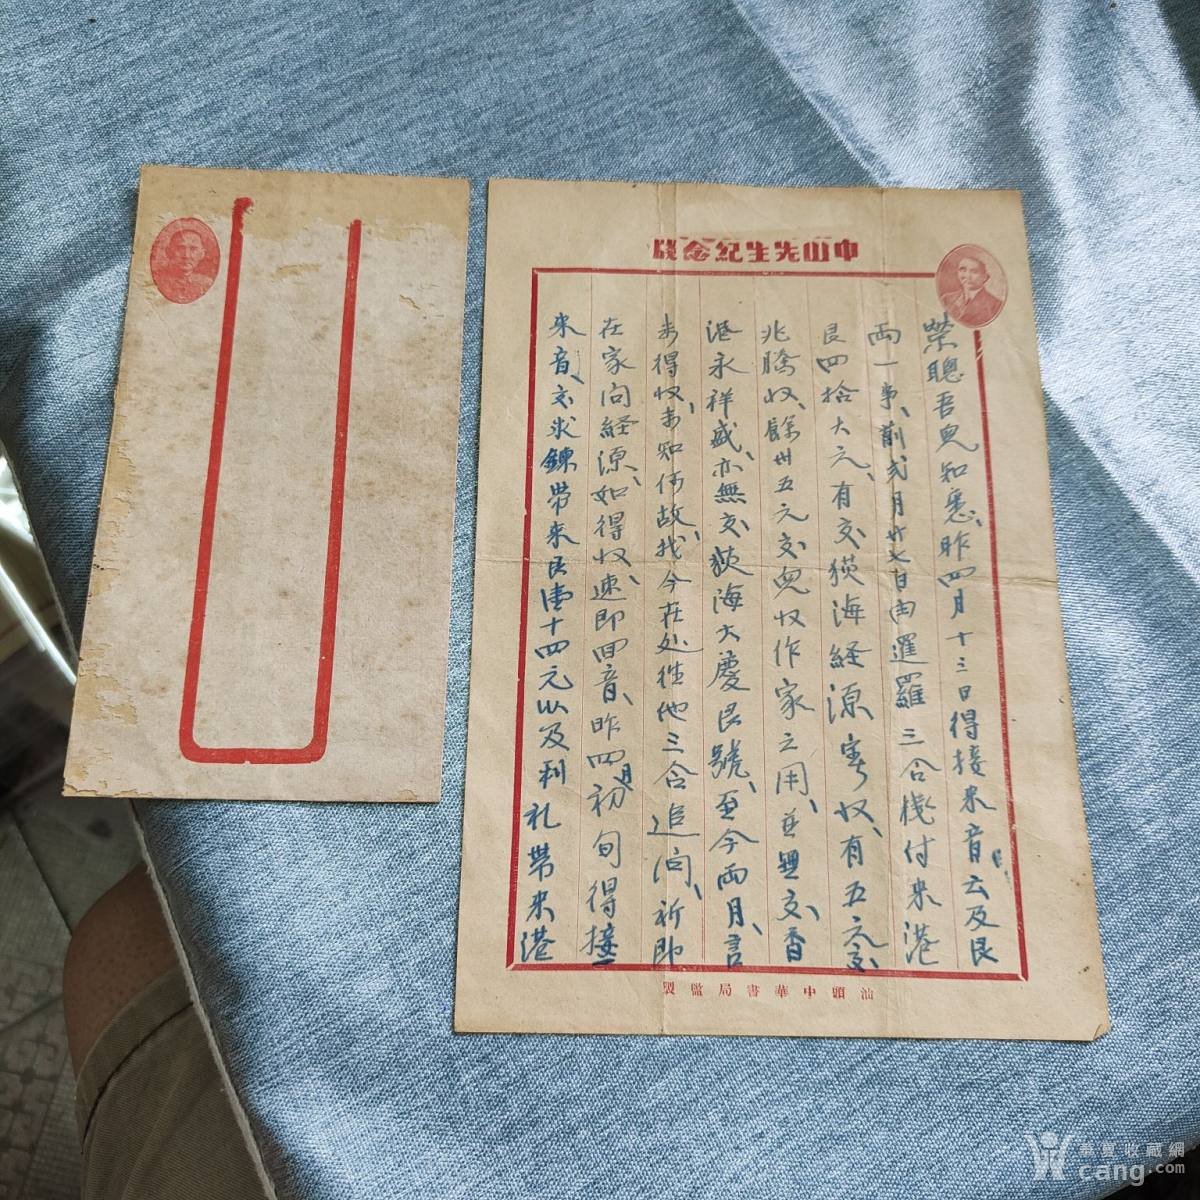 中山先生紀念牋
榮聰吾兒知悉、昨四月十三日得接来音、云及艮
両一事、前弍月廿七日由暹羅三合棧付来港
艮四拾大元、有交荻海経源寄収、有五元交
兆騰収、餘卅五元交兒収作家之用、並無交、香
港永祥盛、亦無交荻海大慶艮號、至今両月、言
未得収、未知何故、我今在处徃他三合追问、祈即
在家问経源、如得収、速即回音、昨四月初旬得接
来音、交求錬帶来艮十四元以及利礼帶来港
汕頭中華書局監製
華寶收藏網
cang.com